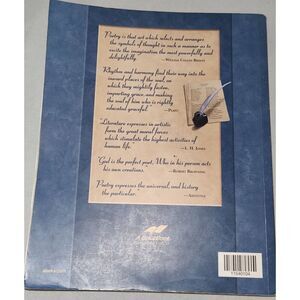 Poetry is that art which selects and arranges
the symbols of thought in such a manner as to
excite the imagination the most powerfully and
delightfully.
—WILLIAM CULLEN BRYANT
Rhythm and harmony find their way into the
inward places of the soul, on
which they mightily fasten,
imparting grace, and making
the soul of him who is rightly
educated graceful.
—PLATO
"Literature expresses in artistic
form the great moral forces
which stimulate the highest activities of
human life."
—L. M. JONES
"God is the perfect poet, Who in his person acts
his own creations.
—ROBERT BROWNING
Poetry expresses the universal, and history
the particular.
—ARISTOTLE
A Beka Book
11540104